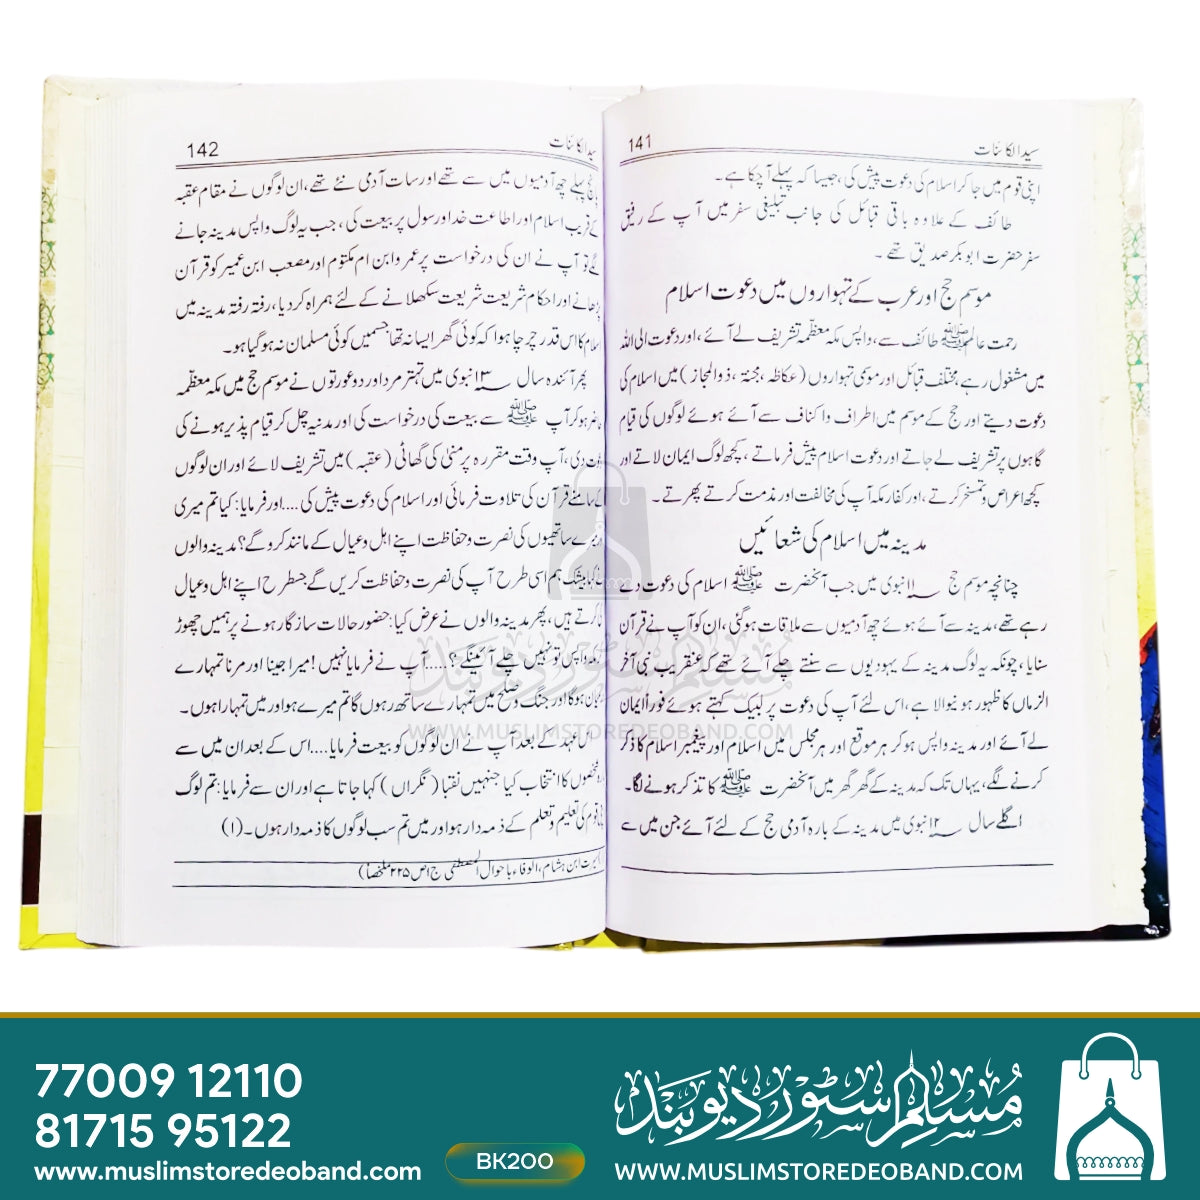 سید الکائنات
141
اپنی قوم میں جا کر اسلام کی دعوت پیش کی، جیسا کہ پہلے آچکا ہے۔
طائف کے علاوہ باقی قبائل کی جانب تبلیغی سفر میں آپ کے رفیق
سفر حضرت ابو بکر صدیق تھے ۔
موسم حج اور عرب کے تہواروں میں دعوت اسلام
رحمت عالم ﷺ طائف سے، واپس مکہ معظّمہ تشریف لے آئے، اور دعوت الی اللہ
میں مشغول رہے، مختلف قبائل اور موسمی تہواروں (عکاظہ، مجنۃ، ذوالمجاز) میں اسلام کی
دعوت دیتے اور حج کے موسم میں اطراف واکناف سے آئے ہوئے لوگوں کی قیام
گاہوں پر تشریف لے جاتے اور دعوت اسلام پیش فرماتے، کچھ لوگ ایمان لاتے اور
کچھ اعراض و تمسخر کرتے، اور کفار مکہ آپ کی مخالفت اور مذمت کرتے پھرتے۔
مدینہ میں اسلام کی شعائیں
چنانچہ موسم حج ۱۱ نبوی میں جب آنحضرت ﷺ اسلام کی دعوت دے
رہے تھے، مدینہ سے آئے ہوئے چھ آدمیوں سے ملاقات ہوگئی، ان کو آپ نے قرآن
سنایا، چونکہ یہ لوگ مدینہ کے یہودیوں سے سنتے چلے آئے تھے کہ عنقریب نبی آخر
الزماں کا ظہور ہونیوالا ہے، اس لئے آپ کی دعوت پر لبیک کہتے ہوئے فوراً ایمان
لے آئے اور مدینہ واپس ہو کر ہر موقع اور ہر مجلس میں اسلام اور پیغمبر اسلام کا ذکر
کرنے لگے، یہاں تک کہ مدینہ کے گھر گھر میں آنحضرت ﷺ کا تذکر ہونے لگا۔
اگلے سال ۱۲ نبوی میں مدینہ کے بارہ آدمی حج کے لئے آئے جن میں سے
سید الکائنات
142
پانچ پہلے چھ آدمیوں میں سے تھے اور سات آدمی نئے تھے، ان لوگوں نے مقام عقبہ
کے قریب اسلام اور اطاعت خدا ور سول پر بیعت کی، جب یہ لوگ واپس مدینہ جانے
لگے تو آپ نے ان کی درخواست پر عمر وابن ام مکتوم اور مصعب ابن عمیر کو قرآن
پڑھانے اور احکام شریعت شریعت سکھلانے کے لئے ہمراہ کردیا، رفتہ رفتہ مدینہ میں
اسلام کا اس قدر چرچا ہوا کہ کوئی گھر ایسا نہ تھا جسمیں کوئی مسلمان نہ ہو گیا ہو۔
پھر آئندہ سال ۱۳ نبوی میں تہتر مرد اور دو عورتوں نے موسم حج میں مکہ معظّمہ
حاضر ہو کر آپ ﷺ سے بیعت کی درخواست کی اور مدنیہ چل کر قیام پذیر ہونے کی
دی، آپ وقت مقررہ پر منیٰ کی گھاٹی (عقبہ) میں تشریف لائے اور ان لوگوں
کے سامنے قرآن کی تلاوت فرمائی اور اسلام کی دعوت پیش کی .... اور فرمایا: کیا تم میری
میرے ساتھیوں کی نصرت و حفاظت اپنے اہل وعیال کے مانند کرو گے؟ مدینہ والوں
نے کہا بیشک ہم اسی طرح آپ کی نصرت و حفاظت کریں گے جسطرح اپنے اہل وعیال
کا کرتے ہیں، پھر مدینہ والوں نے عرض کیا: حضور حالات سازگار ہونے پر ہمیں چھوڑ
کر واپس تو نہیں چلے آئینگے؟ ..... آپ نے فرمایا نہیں! میرا جینا اور مرنا تمہارے
ہوگا اور جنگ وصلح میں تمہارے ساتھ رہوں گا تم میرے ہو اور میں تمہارا ہوں۔
اس عہد کے بعد آپ نے ان لوگوں کو بیعت فرمایا .... اس کے بعد ان میں سے
کا انتخاب کیا جنہیں نقبا (نگراں) کہا جاتا ہے اور ان سے فرمایا: تم لوگ
اپنی قوم کی تعلیم و تعلم کے ذمہ دار ہو اور میں تم سب لوگوں کا ذمہ دار ہوں۔ (۱)
سیرت ابن ہشام، الوفاء باحوال المصطفی ج ۱ ص ۲۲۵ ملخصاً)
مسلم سٹور دیوبند
WWW.MUSLIMSTOREDEOBAND.COM
77009 12110
81715 95122
www.muslimstoredeoband.com
BK200
مسلم سٹور دیوبند
WWW.MUSLIMSTOREDEOBAND.COM